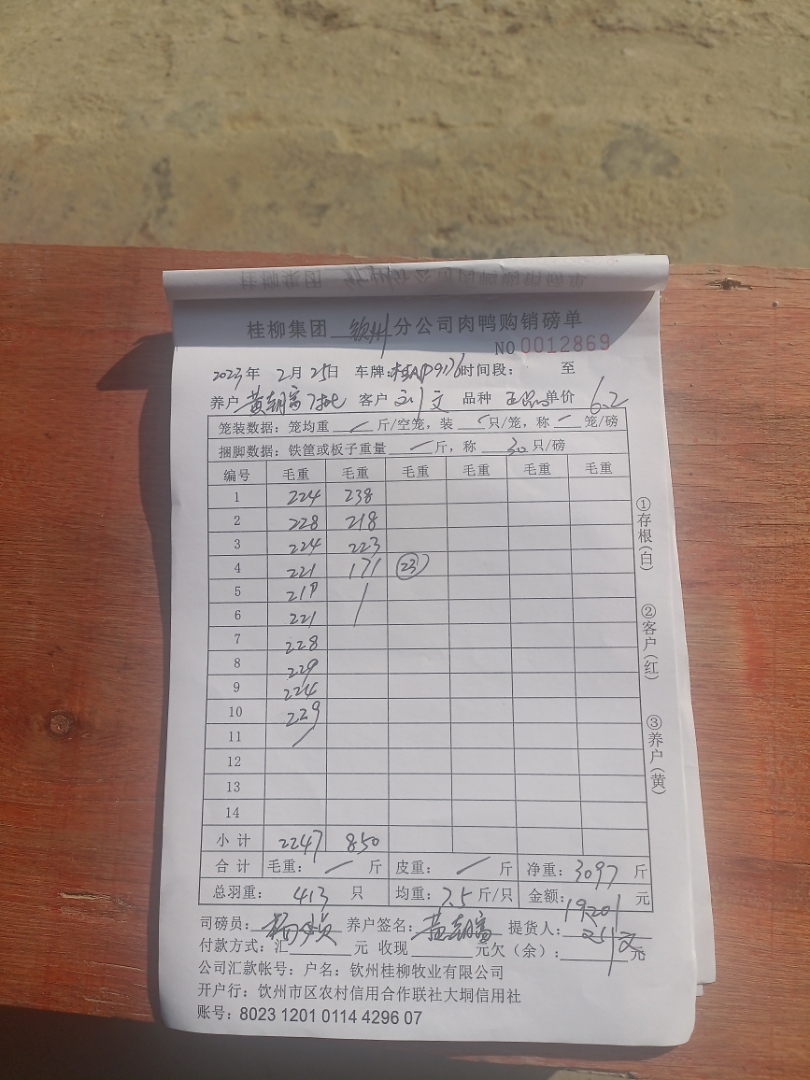 桂柳集团 钦州 分公司肉鸭购销磅单
NO 0012869
2023年 2月 25日 车牌: 桂AD9176 时间段: 至
养户 黄朝富 客户 刘文 品种 单价 6.2
笼装数据: 笼均重 / 斤/空笼, 装 / 只/笼, 称 / 笼/磅
捆脚数据: 铁筐或板子重量 / 斤, 称 30 只/磅
编号 毛重 毛重 毛重 毛重 毛重 毛重
1 224 238
2 228 218
3 224 223
4 221 171 (23)
5 219 /
6 221
7 228
8 229
9 224
10 229
11 /
12
13
14
小计 2247 850
合计 毛重: / 斤 皮重: / 斤 净重: 3097 斤
总羽重: 413 只 均重: 7.5 斤/只 金额: 19201 元
司磅员: 养户签名: 黄朝富 提货人: 刘文
付款方式: 汇 元 收现 元欠(余): 元
公司汇款帐号: 户名: 钦州桂柳牧业有限公司
开户行: 钦州市区农村信用合作联社大垌信用社
账号: 8023 1201 0114 4296 07
①存根(白) ②客户(红) ③养户(黄)